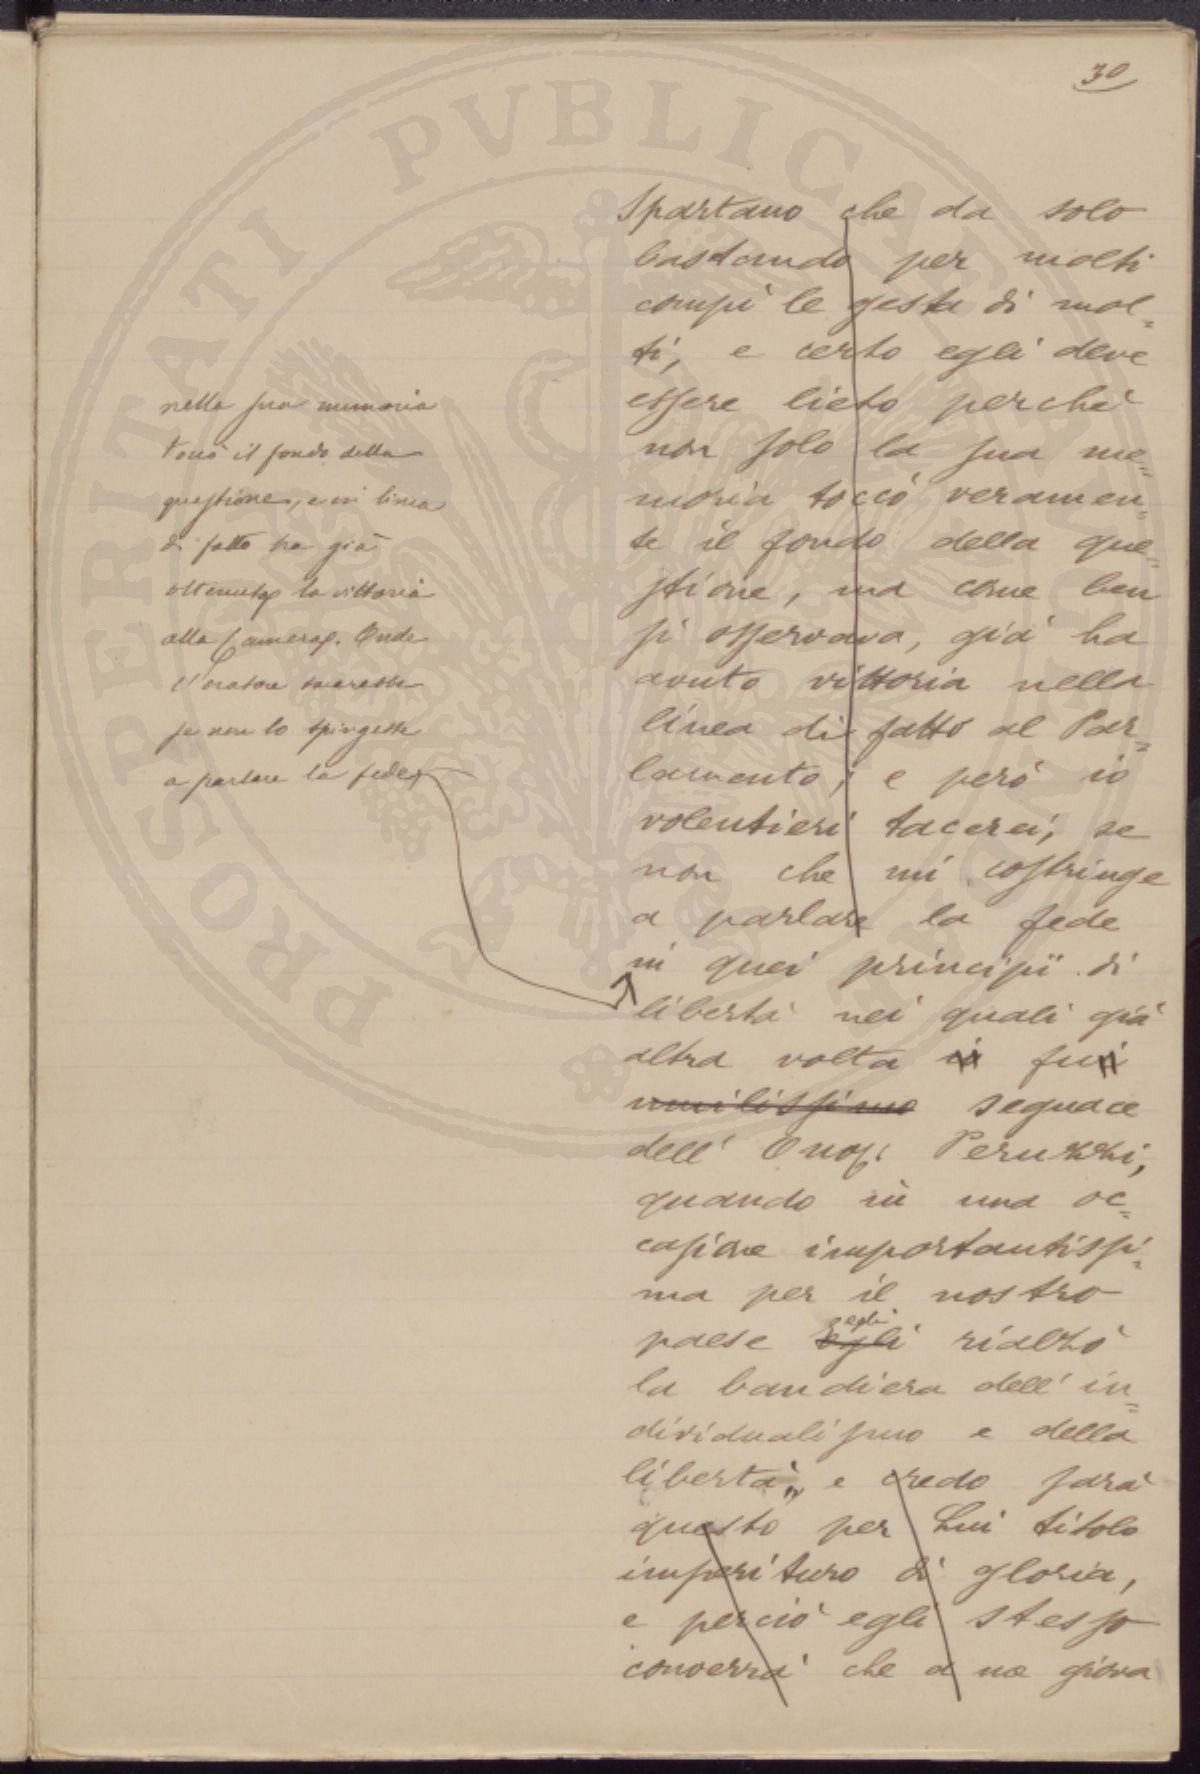 30
Spartano che da solo
bastando per molti
compì le gesta di mol=
ti, e certo egli deve
essere lieto perchè
non solo la sua me=
moria toccò veramen=
te il fondo della que=
stione, ma come ben
si osservava, già ha
avuto vittoria nella
linea di fatto al Par=
lamento; e però io
volentieri tacerei, se
non che mi costringe
a parlare la fede
in quei principii di
libertà nei quali già
altra volta io fui
umilissimo seguace
dell' Onor. Peruzzi,
quando in una oc=
casione importantissi=
ma per il nostro
egli
paese Egli rialzò
la bandiera dell' in=
dividualismo e della
libertà, e credo sarà
questo per Lui titolo
imperituro di gloria,
e perciò egli stesso
converrà che a me giova
nella sua memoria
toccò il fondo della
questione, e in linea
di fatto ha già
ottenuto la vittoria
alla Camera. Onde
l'oratore tacerebbe
se non lo spingesse
a parlare la fede
PROSPERITATI PVBLICAE